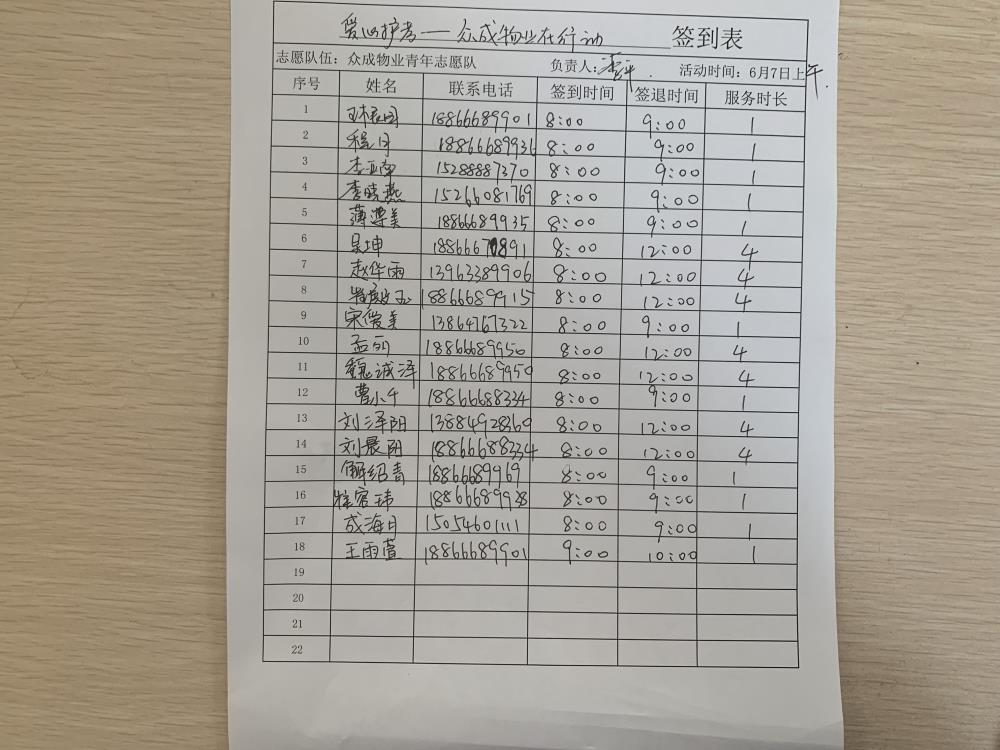 爱心护考——众成物业在行动 签到表
志愿队伍：众成物业青年志愿队 负责人： 活动时间：6月7日上午.
序号 姓名 联系电话 签到时间 签退时间 服务时长
1 18866689901 8:00 9:00 1
2 程月 18866689936 8:00 9:00 1
3 李亚南 15288887370 8:00 9:00 1
4 李晓燕 15266081769 8:00 9:00 1
5 薄尊美 18866689935 8:00 9:00 1
6 吴坤 8:00 12:00 4
7 赵华雨 13963389906 8:00 12:00 4
8 18866689915 8:00 12:00 4
9 宋爱美 13864767322 8:00 9:00 1
10 孟丽 18866689950 8:00 12:00 4
11 魏诚泽 18866689959 8:00 12:00 4
12 曹小千 18866688334 8:00 9:00 1
13 刘泽阳 13884928360 8:00 12:00 4
14 刘晨阳 18866688334 8:00 12:00 4
15 解绍青 18866689969 8:00 9:00 1
16 8:00 9:00 1
17 成海月 15054601111 8:00 9:00 1
18 王雨萱 18866689901 9:00 10:00 1
19
20
21
22